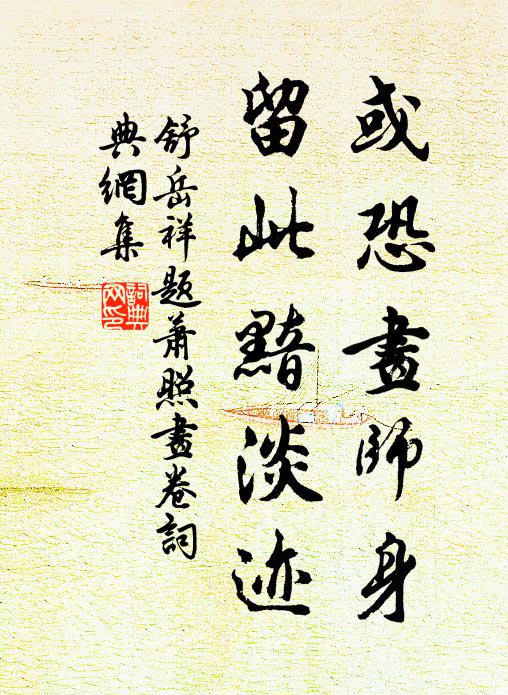 或恐畫師身
留此黯淡迹
舒岳祥題蕭照畫卷詞
典網集
詞典网印